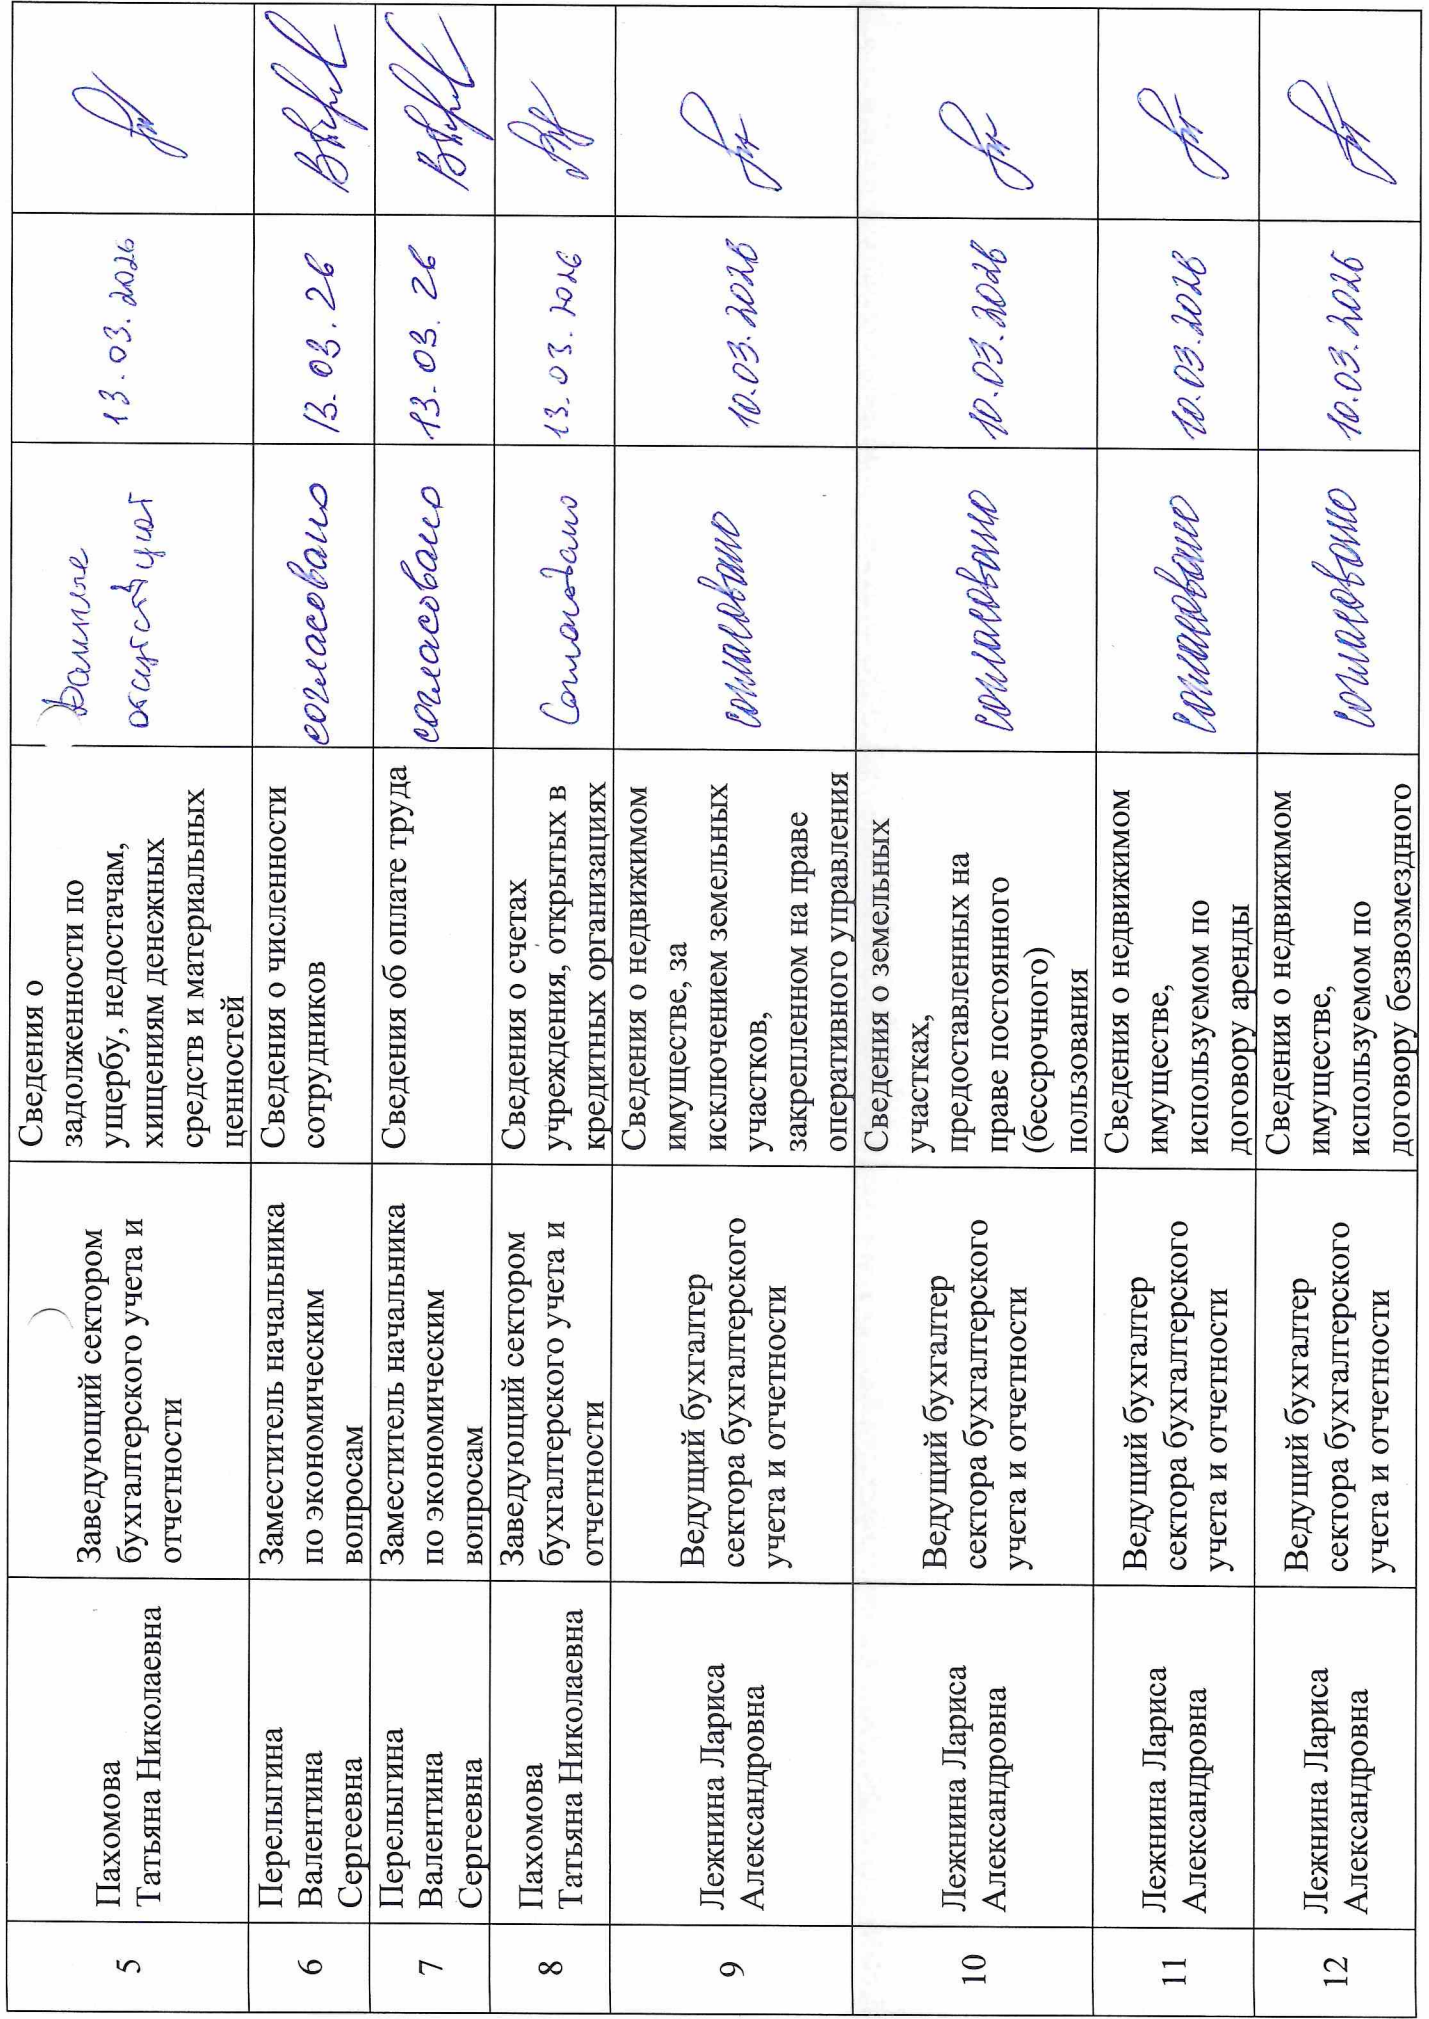 5
Пахомова
Татьяна Николаевна
Заведующий сектором
бухгалтерского учета и
отчетности
Сведения о
задолженности по
ущербу, недостачам,
хищениям денежных
средств и материальных
ценностей
Данные
отсутствуют
13.03.2026
6
Перелыгина
Валентина
Сергеевна
Заместитель начальника
по экономическим
вопросам
Сведения о численности
сотрудников
согласовано
13.03.26
7
Перелыгина
Валентина
Сергеевна
Заместитель начальника
по экономическим
вопросам
Сведения об оплате труда
согласовано
13.03.26
8
Пахомова
Татьяна Николаевна
Заведующий сектором
бухгалтерского учета и
отчетности
Сведения о счетах
учреждения, открытых в
кредитных организациях
Согласовано
13.03.2026
9
Лежнина Лариса
Александровна
Ведущий бухгалтер
сектора бухгалтерского
учета и отчетности
Сведения о недвижимом
имуществе, за
исключением земельных
участков,
закрепленном на праве
оперативного управления
согласовано
10.03.2026
10
Лежнина Лариса
Александровна
Ведущий бухгалтер
сектора бухгалтерского
учета и отчетности
Сведения о земельных
участках,
предоставленных на
праве постоянного
(бессрочного)
пользования
согласовано
10.03.2026
11
Лежнина Лариса
Александровна
Ведущий бухгалтер
сектора бухгалтерского
учета и отчетности
Сведения о недвижимом
имуществе,
используемом по
договору аренды
согласовано
10.03.2026
12
Лежнина Лариса
Александровна
Ведущий бухгалтер
сектора бухгалтерского
учета и отчетности
Сведения о недвижимом
имуществе,
используемом по
договору безвозмездного
согласовано
10.03.2026